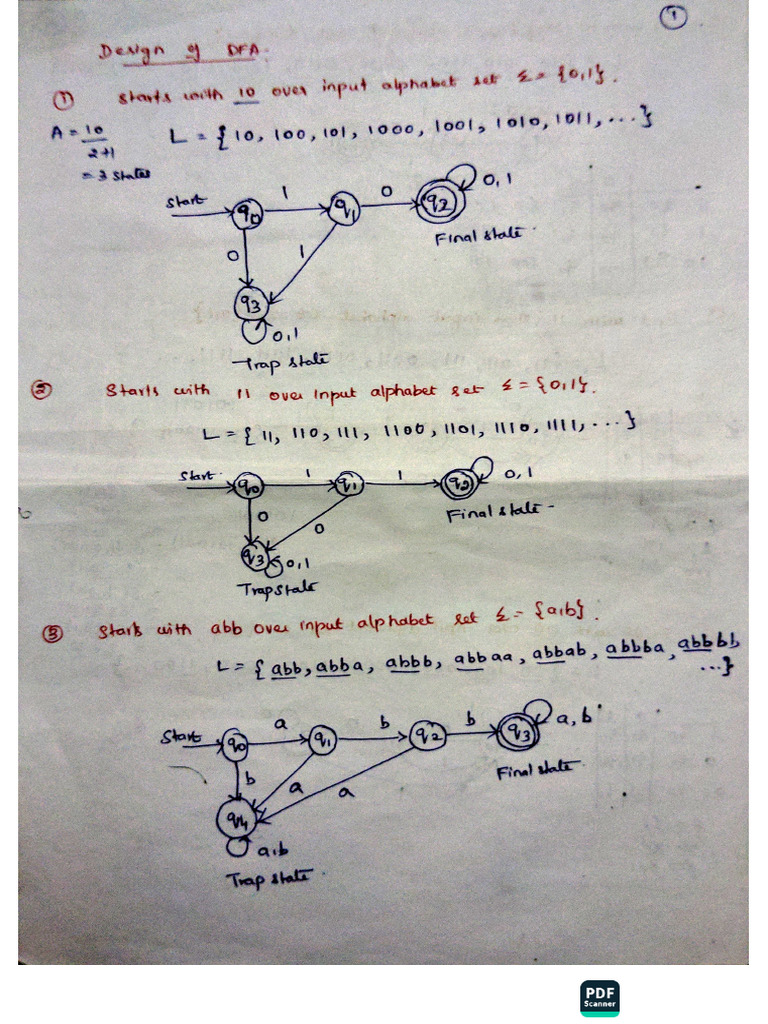 1
Design of DFA.
① Starts with 10 over input alphabet set Σ = {0,1}.
A = 10
2+1
= 3 States
L = {10, 100, 101, 1000, 1001, 1010, 1011, ...}
Start q0 1 q1 0 q2 0,1
Final state.
0 1
q3
0,1
Trap state
② Starts with 11 over input alphabet set Σ = {0,1}.
L = {11, 110, 111, 1100, 1101, 1110, 1111, ...}
Start q0 1 q1 1 q2 0,1
Final state -
0 0
q3 0,1
Trap state
③ Starts with abb over input alphabet set Σ = {a,b}.
L = {abb, abba, abbb, abbaa, abbab, abbba, abbbb,
...}
Start q0 a q1 b q2 b q3 a, b
Final state.
b a a
q4
a,b
Trap state.
PDF
Scanner